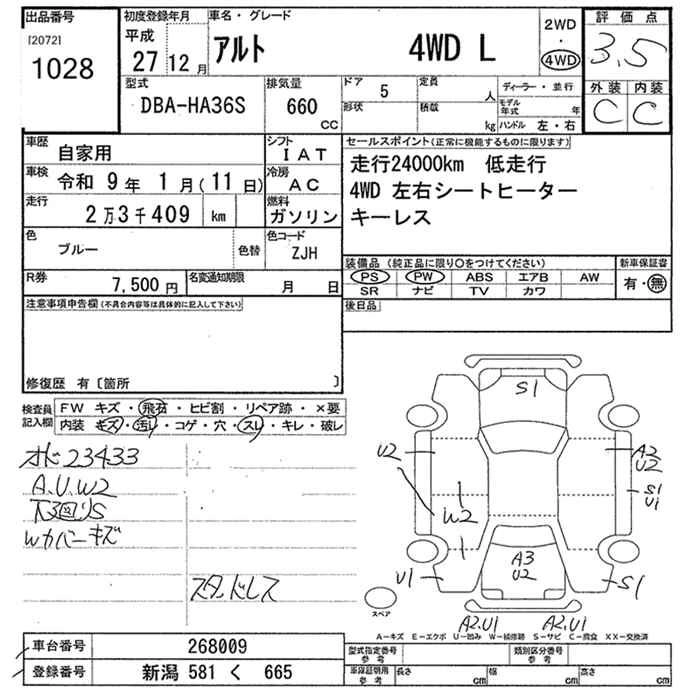 出品番号 初度登録年月 車名・グレード 2WD 評価点
[2072] 平成
1028 27 12月 アルト 4WD L ・ 4WD 3.5
型式 排気量 ドア 5 定員 人 ディーラー・並行 外装 内装
DBA-HA36S 660 cc 形状 積載 kg モデル年式 年 C C
ハンドル 左・右
車歴 自家用 シフト IAT セールスポイント(正常に機能するものに限ります)
車検 令和 9年 1月(11日) 冷房 AC 走行24000km 低走行
走行 2万3千409 km 燃料 ガソリン 4WD 左右シートヒーター
キーレス
色 ブルー 色替 色コード ZJH
装備品(純正品に限り○をつけてください) 新車保証書
R券 7,500円 名変通知期限 月 日 PS PW ABS エアB AW 有・無
SR ナビ TV カワ
注意事項申告欄(不具合内容等は具体的に記入して下さい) 後日品
修復歴 有〔箇所 〕
検査員記入欄 FW キズ・飛石・ヒビ割・リペア跡・×要
内装 キズ・汚レ・コゲ・穴・スレ・キレ・破レ
オド 23433
A.U.W2
下回りS
Wカバーキズ
スタッドレス
S1
U2
A2
U2
S1
U1
W2
A3
U2
U1
S1
A2.U1 A2.U1
スペア
A－キズ E－エクボ U－凹み W－補修跡 S－サビ C－腐食 XX－交換済
車台番号 268009 型式指定番号 参考 類別区分番号 参考
登録番号 新潟 581 く 665 車庫証明用 参考 長さ cm 幅 cm 高さ cm